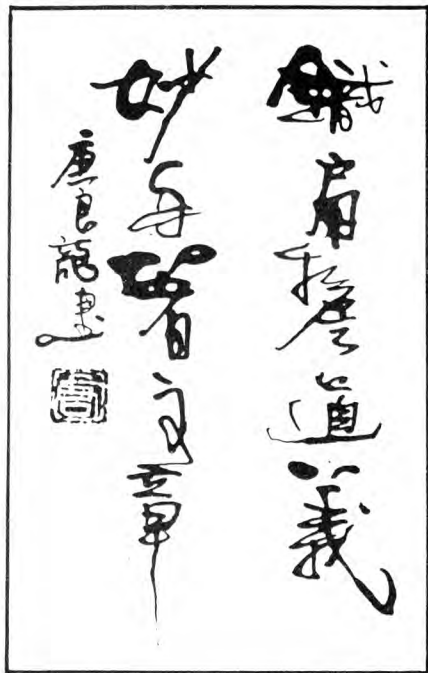 鐵肩擔道義
妙手著文章
良龍書